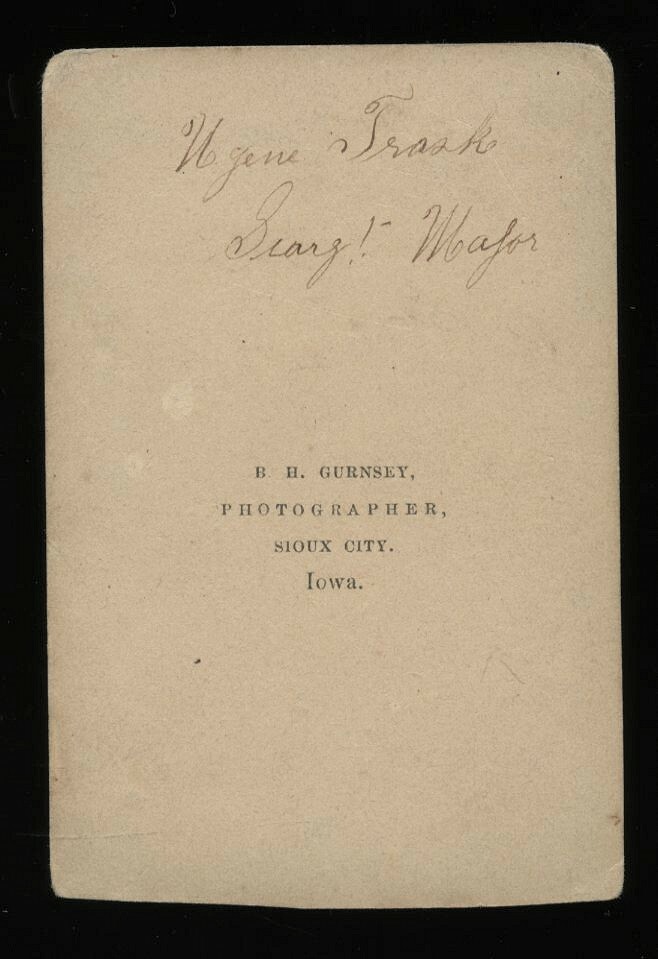 Ugene Trask
Searg! Major
B. H. GURNSEY,
PHOTOGRAPHER,
SIOUX CITY.
Iowa.